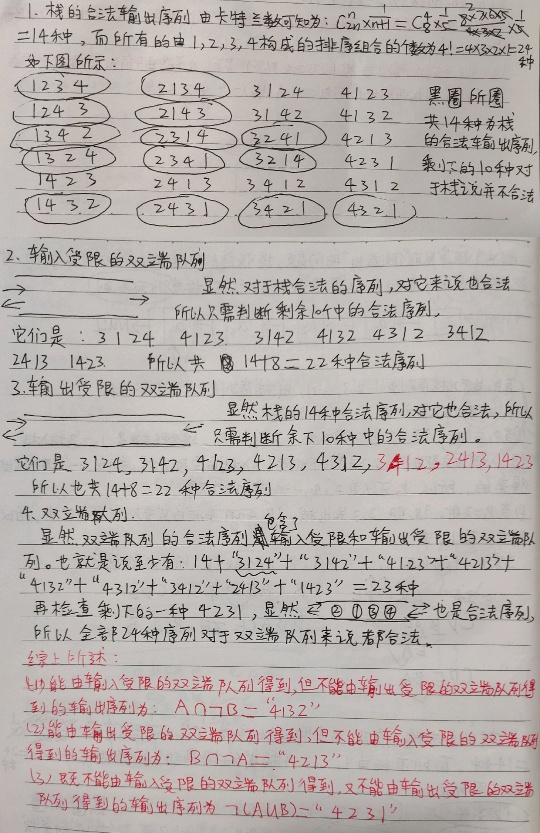 1. 栈的合法输出序列 由卡特兰数可知为: C₂ₙⁿ×1/(n+1) = C₈⁴×1/5 = 8×7×6×5/4×3×2×1/5
=14种, 而所有的由1,2,3,4构成的排序组合的个数为4!=4×3×2×1=24种
如下图所示:
1234 2134 3124 4123 黑圈所圈
1243 2143 3142 4132 共14种为栈
1342 2314 3241 4213 的合法输出序列,
1324 2341 3214 4231 剩下的10种对
1423 2413 3412 4312 于栈说并不合法
1432 2431 3421 4321
2. 输入受限的双端队列
显然对于栈合法的序列,对它来说也合法
所以只需判断剩余10个中的合法序列,
它们是: 3124 4123 3142 4132 4312 3412
2413 1423 所以共 14+8=22种合法序列
3.输出受限的双端队列
显然栈的14种合法序列,对它也合法,所以
只需判断余下10种中的合法序列。
它们是 3124, 3142, 4123, 4213, 4312, 3412, 2413, 1423
所以也共14+8=22 种合法序列
4. 双端队列.
显然双端队列的合法序列包含了输入受限和输出受限的双端队
列。也就是说至少有: 14+"3124"+"3142"+"4123"+"4213"+
"4132"+"4312"+"3412"+"2413"+"1423" =23种
再检查剩下的一种 4231, 显然 ②①③④ 也是合法序列,
所以全部24种序列对于双端队列来说都合法。
综上所述:
(1)能由输入受限的双端队列得到,但不能由输出受限的双端队列得
到的输出序列为: A∩¬B="4132"
(2)能由输出受限的双端队列得到,但不能由输入受限的双端队列
得到的输出序列为: B∩¬A="4213"
(3)既不能由输入受限的双端队列得到,又不能由输出受限的双端
队列得到的输出序列为 ¬(A∪B)="4231"